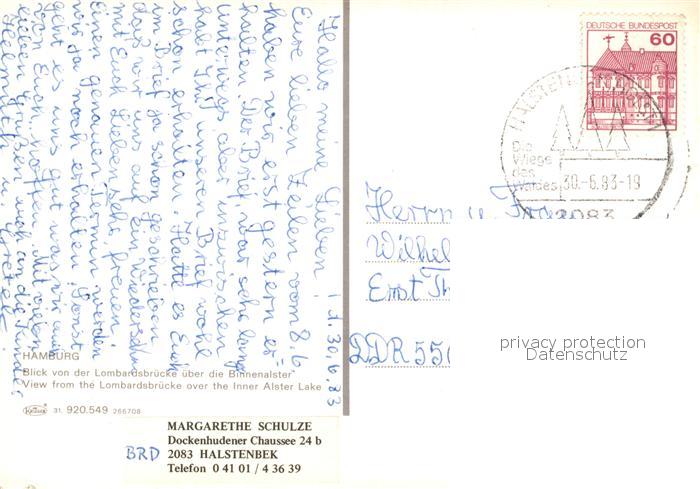 Hallo meine Lieben! d. 30.6.83
Eure lieben Zeilen vom 8.6
haben wir erst gestern er=
halten. Der Brief war sehr lang
unterwegs aber inzwischen
habt Ihr unseren Brief wohl
schon erhalten. Hatte es Euch
im Brief ja schon geschrieben,
daß wir uns auf ein Wiedersehn
mit Euch Lieben sehr freuen
Einen genauen Termin werden
wir da noch erhalten. Sonst
geht es uns gut was wir auch
von Euch hoffen. Mit vielen
lieben Grüßen auch an die Kinder
Helmuth u. Gretel
HAMBURG
Blick von der Lombardsbrücke über die Binnenalster
View from the Lombardsbrücke over the Inner Alster Lake
Krüger 31. 920.549 266708
BRD
MARGARETHE SCHULZE
Dockenhudener Chaussee 24 b
2083 HALSTENBEK
Telefon 0 41 01 / 4 36 39
DEUTSCHE BUNDESPOST
60
Die
Wiege
des
Waldes
30.-6.83-19
2083
Herrn u.
Wilhel
Ernst Th
DDR 550
privacy protection
Datenschutz